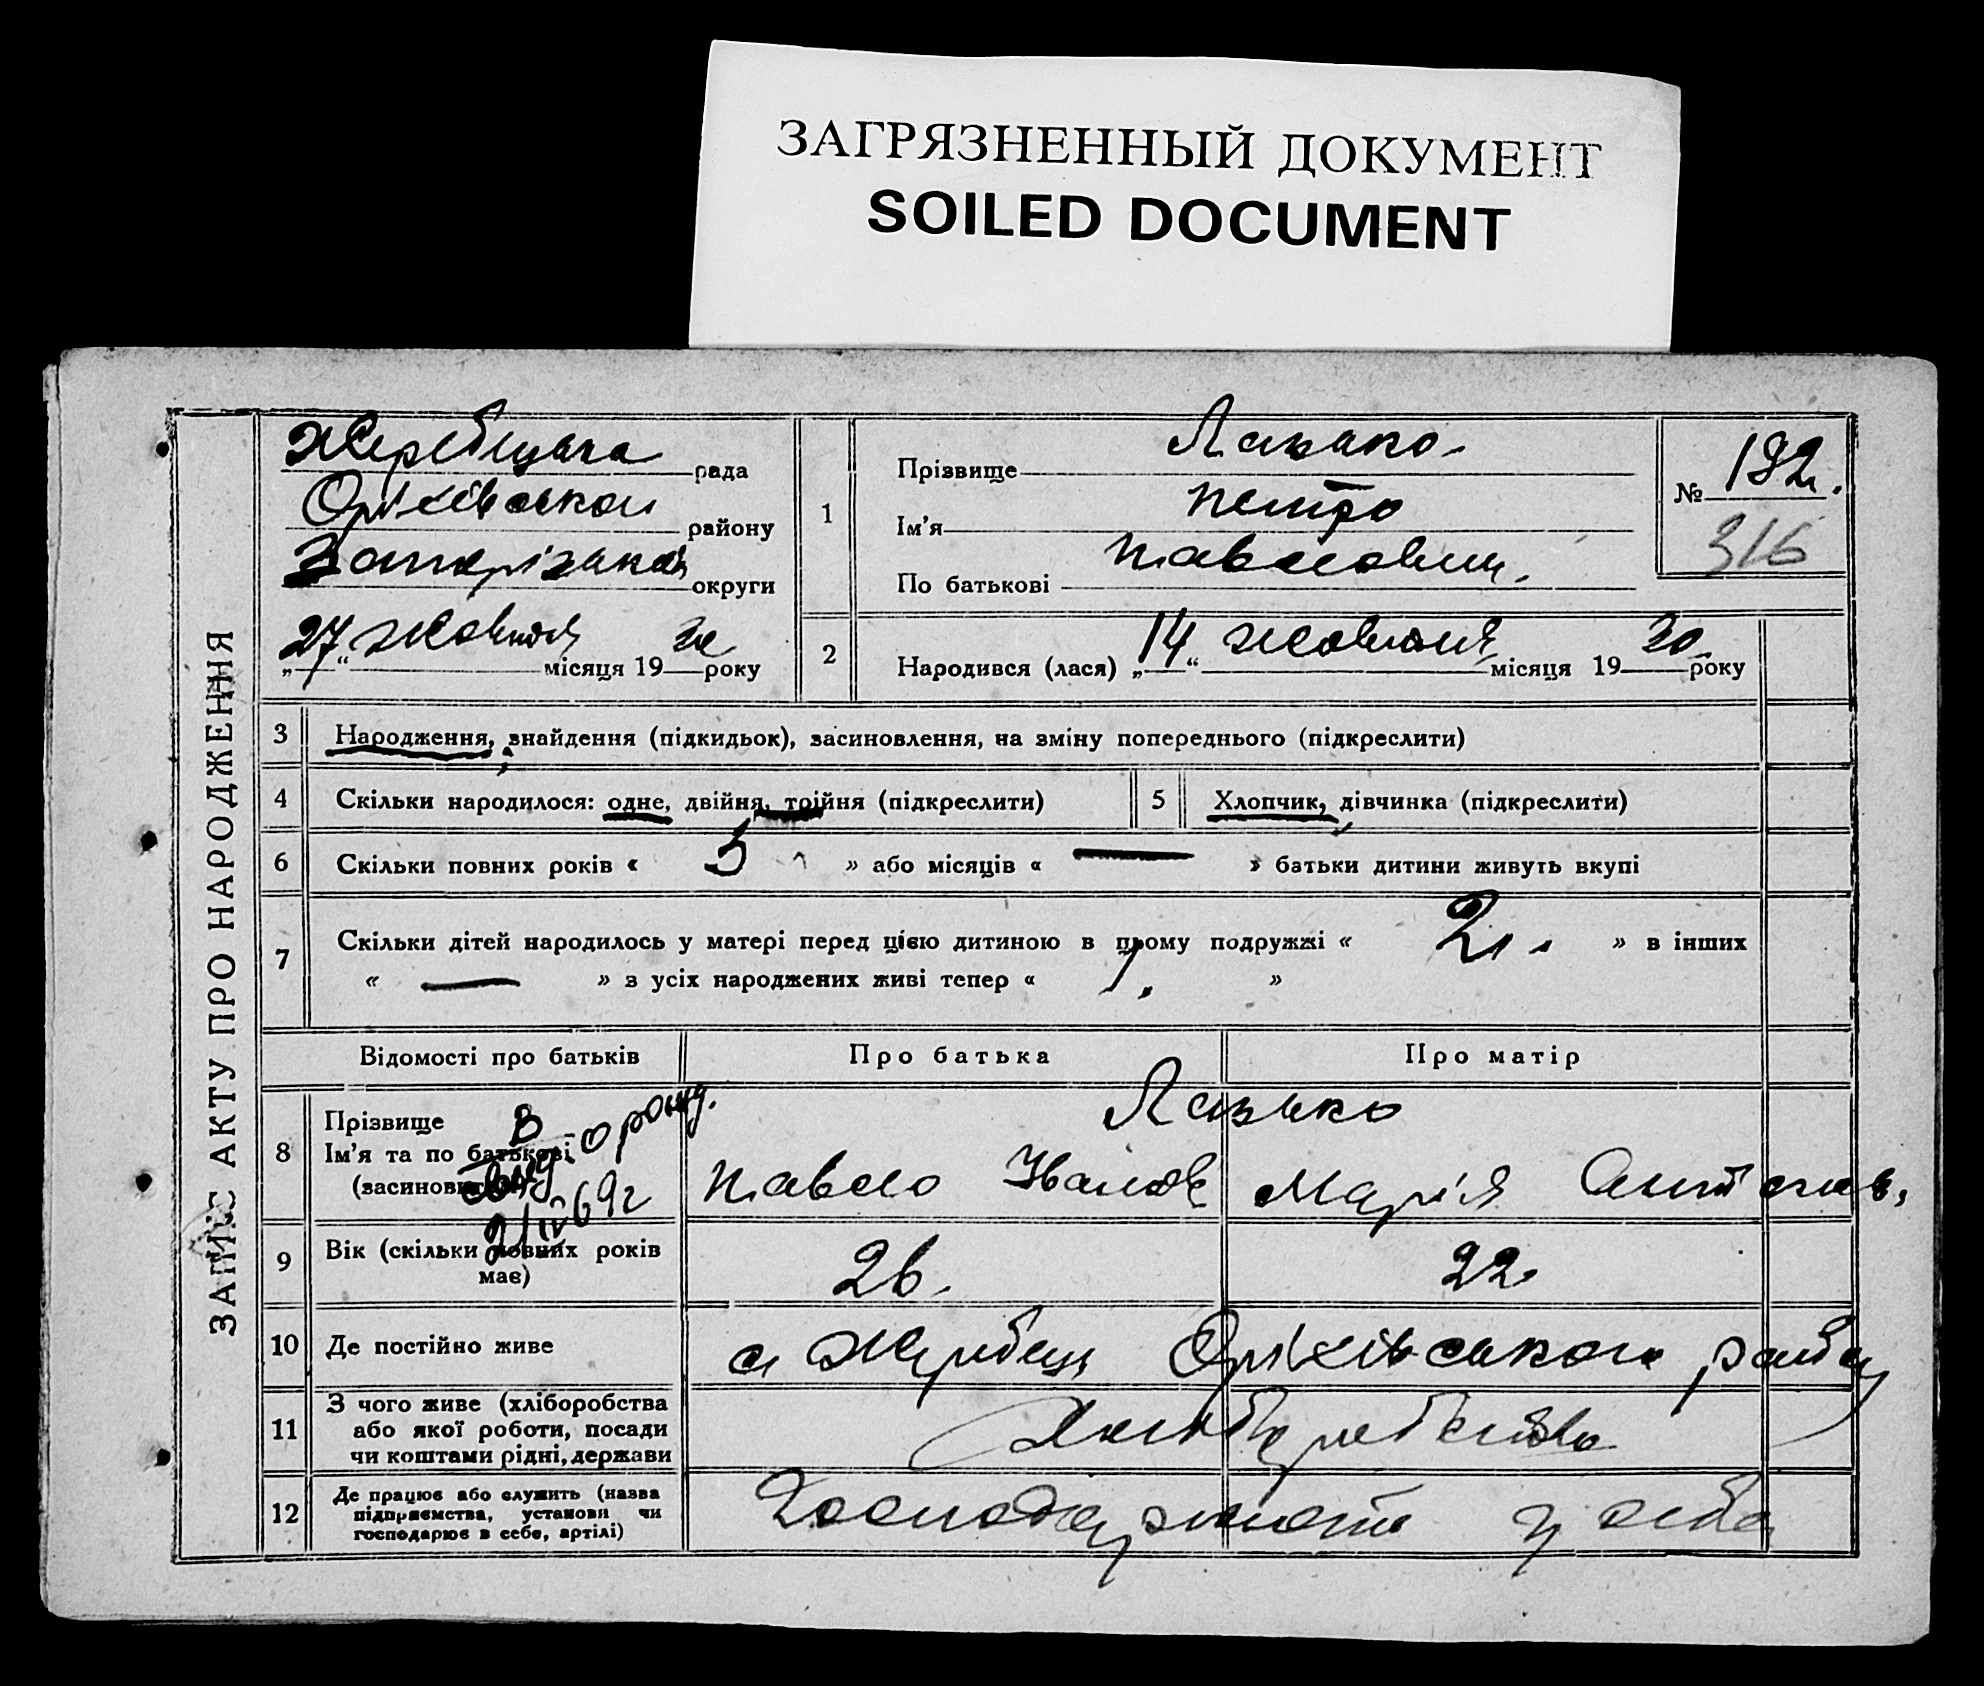 ЗАГРЯЗНЕННЫЙ ДОКУМЕНТ
SOILED DOCUMENT
ЗАПИС АКТУ ПРО НАРОДЖЕННЯ
Жеребецька рада
Оріхівського району
Запорізької округи
„27“ жовтня місяця 1930 року
1
Прізвище Лазько
Ім'я Петро
По батькові Павлович
№ 192.
316
2
Народився (лася) „14“ жовтня місяця 1930 року
3 Народження, знайдення (підкидьок), засиновлення, на зміну попереднього (підкреслити)
4 Скільки народилося: одне, двійня, трійня (підкреслити)
5 Хлопчик, дівчинка (підкреслити)
6 Скільки повних років « 5 » або місяців « — » батьки дитини живуть вкупі
7 Скільки дітей народилось у матері перед цією дитиною в цьому подружжі « 2 » в інших
« — » з усіх народжених живі тепер « 1. »
Відомості про батьків Про батька Про матір
8 Прізвище
Ім'я та по батькові
Лазько
Павло Іванов Марія Антонов.
В
69г
9 Вік (скільки повних років має)
26. 22.
10 Де постійно живе
с Жеребець Оріхівського
11 З чого живе (хліборобства
або якої роботи, посади
чи коштами рідні, держави
Хліборобство
12 Де працює або служить (назва
підприємства, установи чи
господарює в себе, артілі)
Господарюють у себе